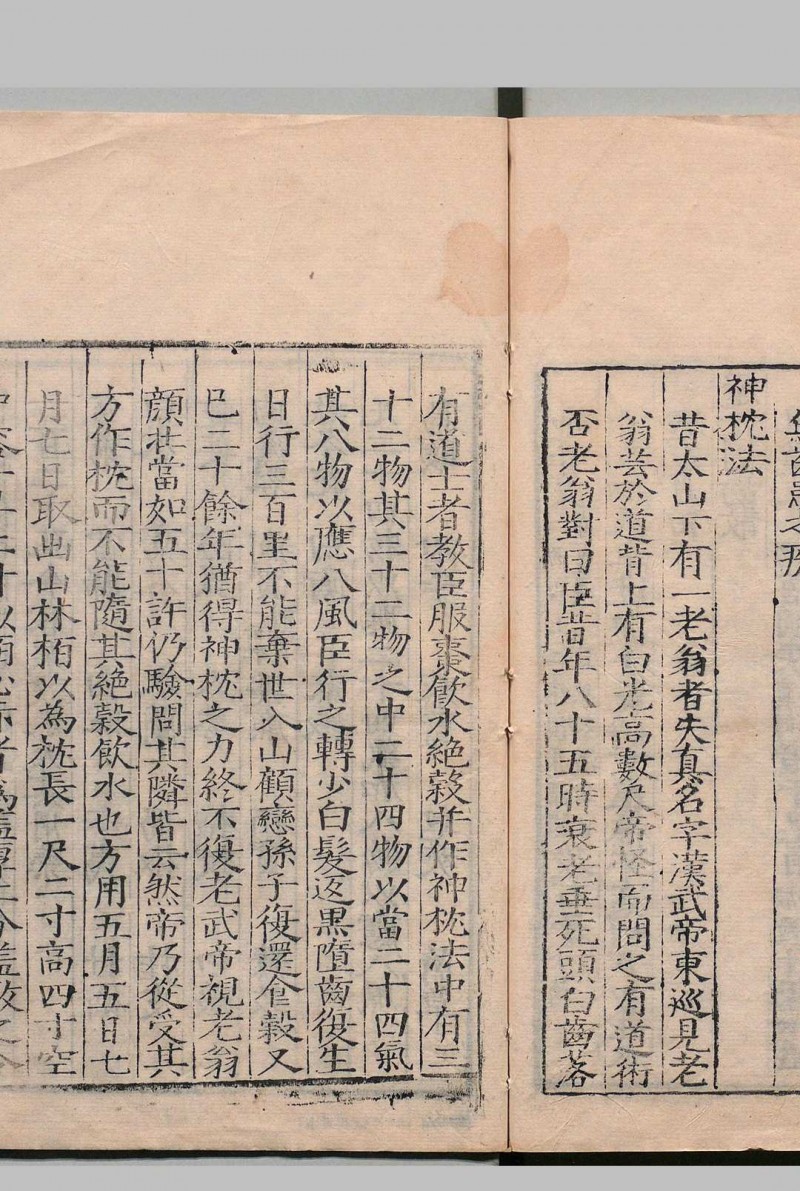 無齒患之疾
神枕法
昔太山下有一老翁者失真名字漢武帝東巡見老
翁芸於道背上有白光高數尺帝怪而問之有道術
否老翁對曰臣昔年八十五時衰老垂死頭白齒落
有道士者教臣服棗飲水絶穀并作神枕法中有三
十二物其三十二物之中二十四物以當二十四氣
其八物以應八風臣行之轉少白髮返黒墮齒復生
日行三百里不能棄世入山顧戀孫子復還食穀又
巳二十餘年猶得神枕之力終不復老武帝視老翁
顔壮當如五十許仍驗問其隣皆云然帝乃從受其
方作枕而不能隨其絶穀飲水也方用五月五日七
月七日取幽山林栢以為枕長一尺二寸高四寸空